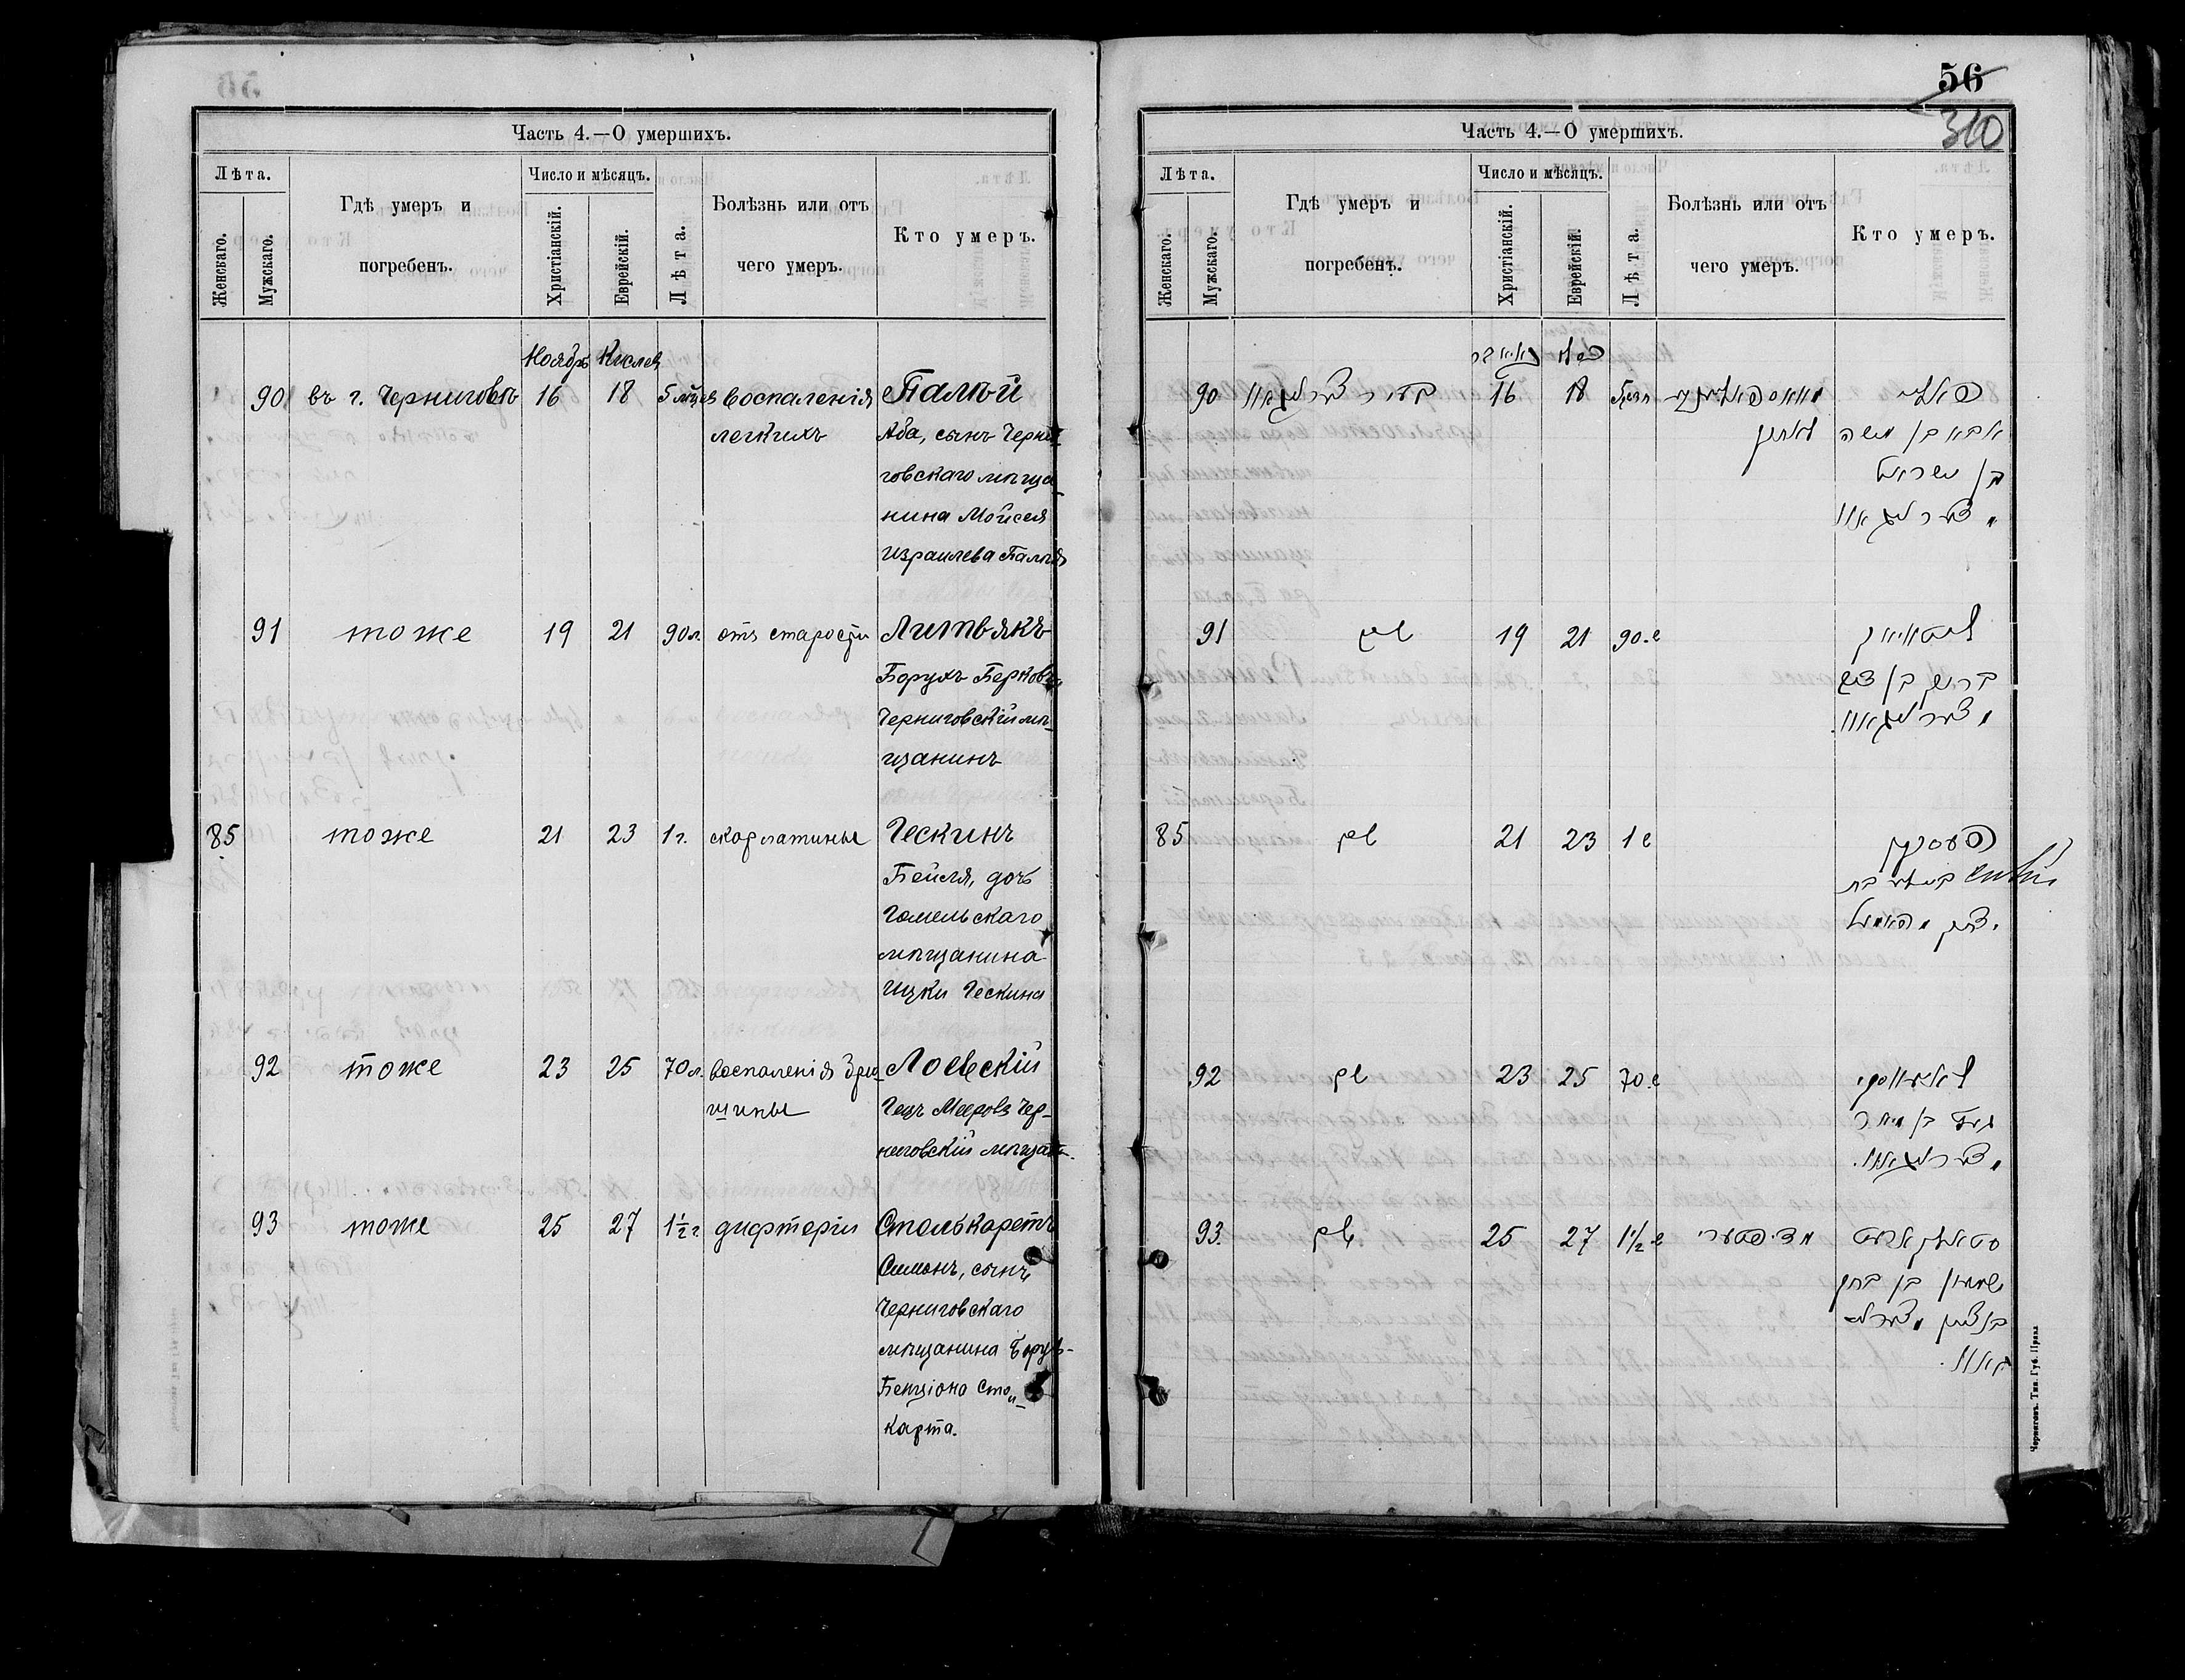 Часть 4.—О умершихъ.
Лѣта.
Женскаго.
Мужскаго.
Гдѣ умеръ и
погребенъ.
Число и мѣсяцъ.
Христіанскій.
Еврейскій.
Лѣта.
Болѣзнь или отъ
чего умеръ.
Кто умеръ.
Ноябрь Кислев
90 въ г. Черниговѣ 16 18 5 воспаленія Палѣй
легкихъ Аба, сынъ Черни-
говскаго мѣща-
нина Мойсея
Израилева Палѣя
91 тоже 19 21 90 л. отъ старости Литвякъ
Борухъ Берковъ
Черниговскій мѣ-
щанинъ
85 тоже 21 23 1 г. скарлатины Гескинъ
Бейля, дочь
Гомельскаго
мѣщанина
Ицки Гескина
92 тоже 23 25 70 л. воспаленія брю- Лоевскій
шины Гецъ Мееровъ Чер-
ниговскій мѣщан.
93 тоже 25 27 1½ г. дифтеріи Столькаретъ
Симонъ, сынъ
Черниговскаго
мѣщанина Борух-
Бенціона Стол-
карта.
56
310
Часть 4.—О умершихъ.
Лѣта.
Женскаго.
Мужскаго.
Гдѣ умеръ и
погребенъ.
Число и мѣсяцъ.
Христіанскій.
Еврейскій.
Лѣта.
Болѣзнь или отъ
чего умеръ.
Кто умеръ.
90 16 18 5
אבא בן משה
בן ישראל
91 19 21 90
ליטוואק
85 21 23 1
העסקין
92 23 25 70
געץ בן מאיר
93 25 27 1½
שמעון בן ברוך
בן ציון
Черниговъ. Тип. Губ. Правл